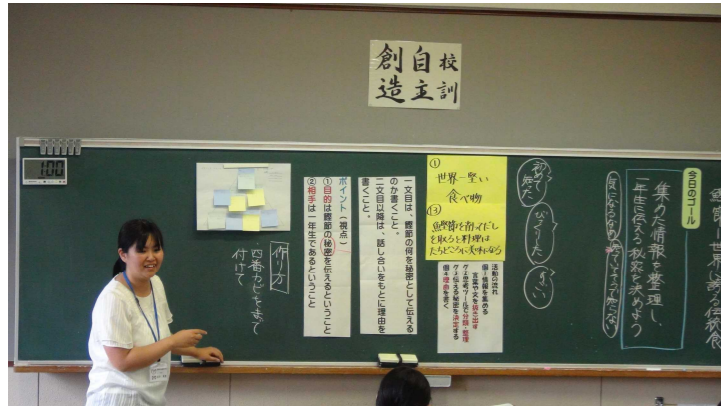 校訓
自主
創造
今日のゴール
集めた情報を整理し、
一年生に伝える秘密を決めよう
初めて知った
びっくりした
すごい
①
世界一堅い
食べ物
⑬
鰹節を削ってだし
を取ると料理は
たちどころに美味になる
活動の流れ
個:情報を集める
言葉や文を抜き出す
グ:思考ツールで分類・整理
グ:伝える秘密を決定する
個:理由を書く
一文目は、鰹節の何を秘密として伝える
のか書くこと。
二文目以降は、話し合いをもとに理由を
書くこと。
ポイント(視点)
①目的は鰹節の秘密を伝えるということ
②相手は一年生であるということ
作り方
四番カビをまで
付けて
1:00